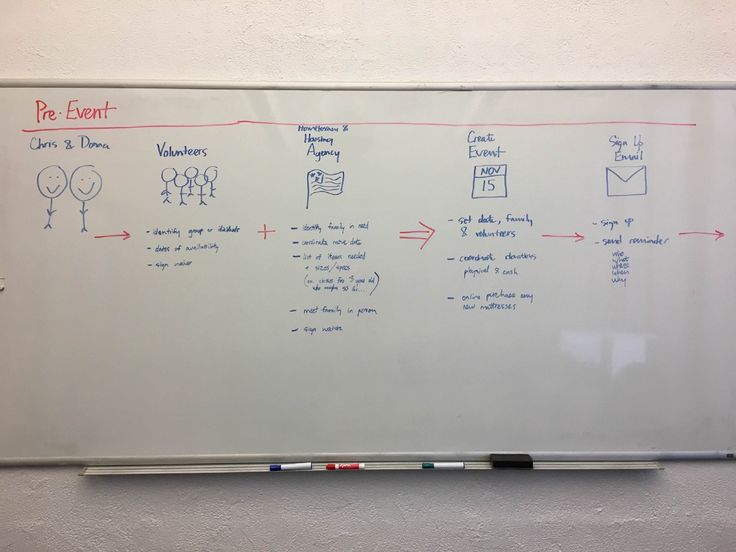 Pre-Event
Chris & Donna
Volunteers
- identify group or
- dates of availability
- sign waiver
+
&
Housing
Agency
- identify family in need
- coordinate move date
- list of items needed
+ sizes/specs
(ex. clothes for 3 year old
who weighs 30 lbs...)
- meet family in person
- sign waiver
Create
Event
NOV
15
- set date, family
& volunteers
- coordinate donations
physical & cash
- online purchase any
new mattresses
Sign Up
Email
- sign up
- send reminder
who
what
where
when
why